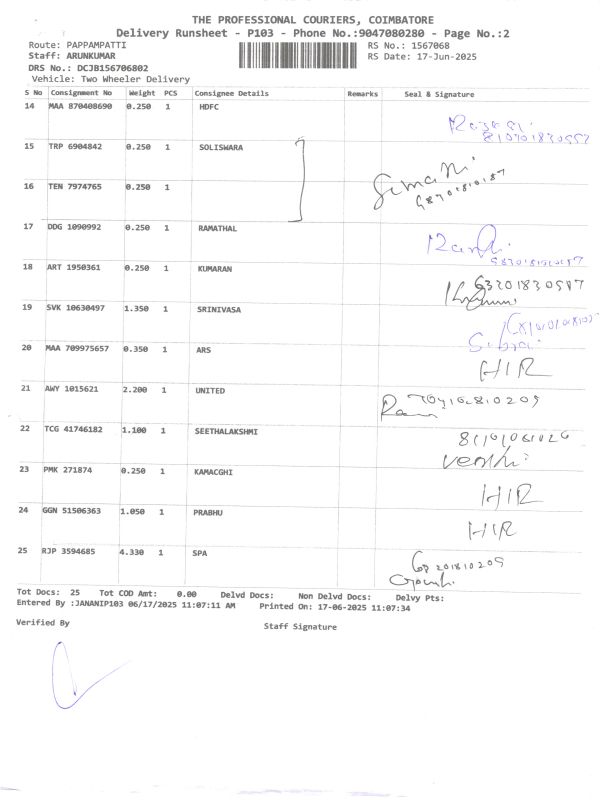 THE PROFESSIONAL COURIERS, COIMBATORE
Delivery Runsheet - P103 - Phone No.:9047080280 - Page No.:2
Route: PAPPAMPATTI RS No.: 1567068
Staff: ARUNKUMAR RS Date: 17-Jun-2025
DRS No.: DCJB156706802
Vehicle: Two Wheeler Delivery
S No Consignment No Weight PCS Consignee Details Remarks Seal & Signature
14 MAA 870408690 0.250 1 HDFC
15 TRP 6904842 0.250 1 SOLISWARA
16 TEN 7974765 0.250 1
17 DDG 1090992 0.250 1 RAMATHAL
18 ART 1950361 0.250 1 KUMARAN
19 SVK 10630497 1.350 1 SRINIVASA
20 MAA 709975657 0.350 1 ARS
HIR
21 AWY 1015621 2.200 1 UNITED
22 TCG 41746182 1.100 1 SEETHALAKSHMI
23 PMK 271874 0.250 1 KAMACGHI
HIR
24 GGN 51506363 1.050 1 PRABHU
HIR
25 RJP 3594685 4.330 1 SPA
Tot Docs: 25 Tot COD Amt: 0.00 Delvd Docs: Non Delvd Docs: Delvy Pts:
Entered By :JANANIP103 06/17/2025 11:07:11 AM Printed On: 17-06-2025 11:07:34
Verified By Staff Signature